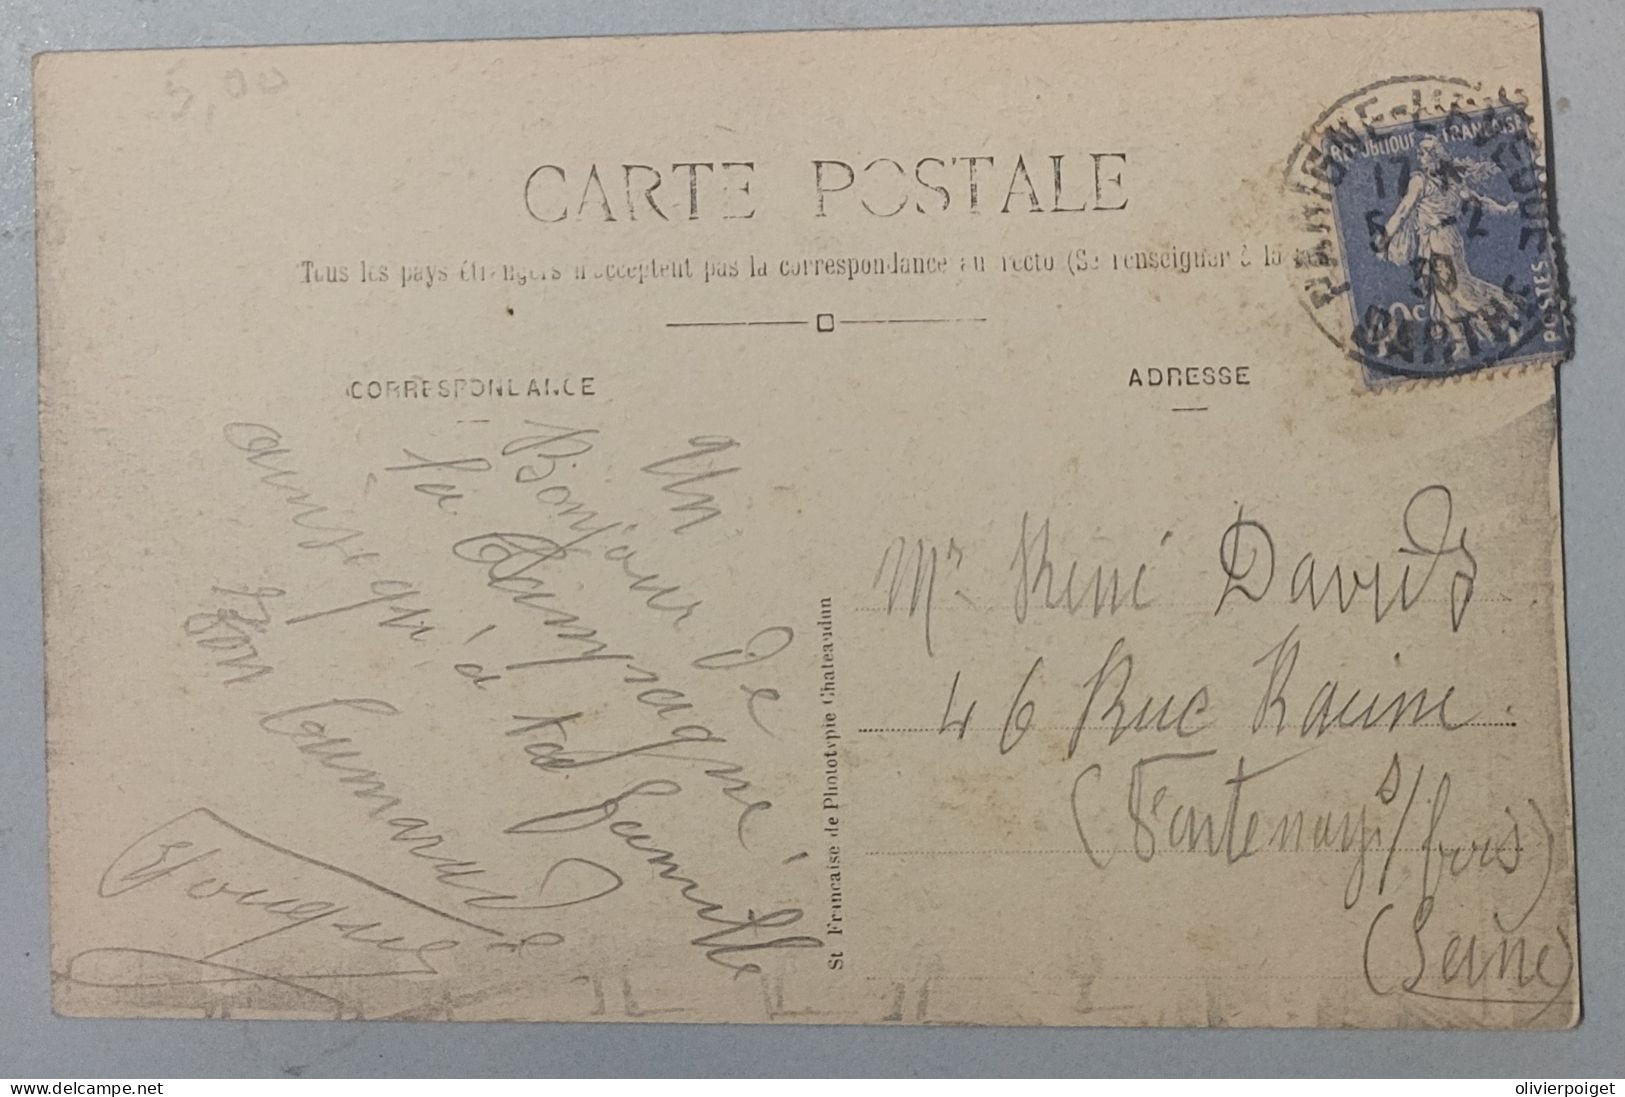 5,00
CARTE POSTALE
Tous les pays étrangers n'acceptent pas la correspondance au recto (Se renseigner à la
CORRESPONDANCE
ADRESSE
REPUBLIQUE FRANCAISE
POSTES
PARIGNE-L'EVEQUE
17
5 -2
30
SARTHE
Un
Bonjour de
la Campagne
ainsi qu'à ta famille
Ton Camarade
St Francaise de Phototypie Chateaudun
Mr Réné David
46 Rue Racine
(Fontenay s/ bois)
(Seine)
delcampe.net
olivierpoiget